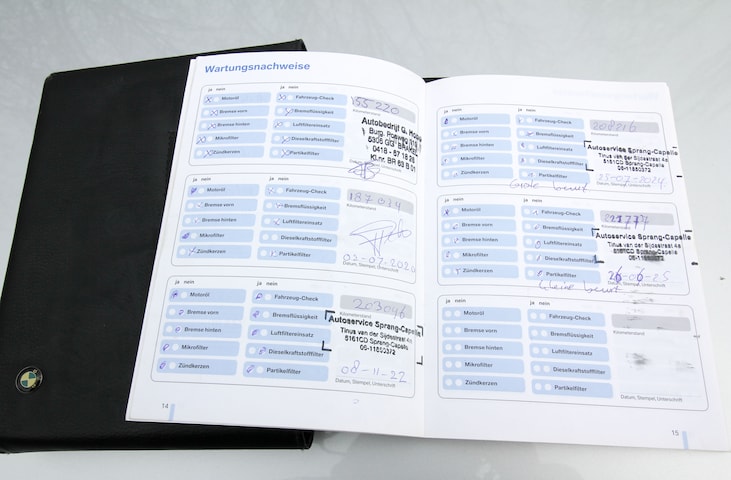 Wartungsnachweise
ja nein
ja nein
Motoröl
Fahrzeug-Check
155 220
Bremse vorn
Bremsflüssigkeit
Kilometerstand
Bremse hinten
Luftfiltereinsatz
Autobedrijf G.
Mikrofilter
Dieselkraftstofffilter
Burg.
Zündkerzen
Partikelfilter
0418 - 57 18 28
Kl.nr. BR 68 B 01
ja nein
ja nein
Motoröl
Fahrzeug-Check
Bremse vorn
Bremsflüssigkeit
Kilometerstand
Bremse hinten
Luftfiltereinsatz
Mikrofilter
Dieselkraftstofffilter
Zündkerzen
Partikelfilter
Datum, Stempel, Unterschrift
ja nein
ja nein
Motoröl
Fahrzeug-Check
203046
Bremse vorn
Bremsflüssigkeit
Bremse hinten
Luftfiltereinsatz
Autoservice Sprang-Capelle
Tinus van der Sijdestraat 4a
5161CD Sprang-Capelle
06-11850372
Mikrofilter
Dieselkraftstofffilter
Zündkerzen
Partikelfilter
08-11-22
Datum, Stempel, Unterschrift
14
ja nein
ja nein
Motoröl
Fahrzeug-Check
208216
Bremse vorn
Bremsflüssigkeit
Kilometerstand
Bremse hinten
Luftfiltereinsatz
Autoservice Sprang-Capelle
Tinus van der Sijdestraat 4a
5161CD Sprang-Capelle
06-11850372
Mikrofilter
Dieselkraftstofffilter
Zündkerzen
Partikelfilter
23-07-2024
Datum, Stempel, Unterschrift
Grote beurt
ja nein
ja nein
Motoröl
Fahrzeug-Check
Bremse vorn
Bremsflüssigkeit
Bremse hinten
Luftfiltereinsatz
Autoservice Sprang-Capelle
Tinus van der Sijdestraat 4a
5161CD Sprang-Capelle
Mikrofilter
Dieselkraftstofffilter
Zündkerzen
Partikelfilter
26-06-25
Datum, Stempel, Unterschrift
kleine beurt
ja nein
ja nein
Motoröl
Fahrzeug-Check
Bremse vorn
Bremsflüssigkeit
Kilometerstand
Bremse hinten
Luftfiltereinsatz
Mikrofilter
Dieselkraftstofffilter
Zündkerzen
Partikelfilter
Datum, Stempel, Unterschrift
15